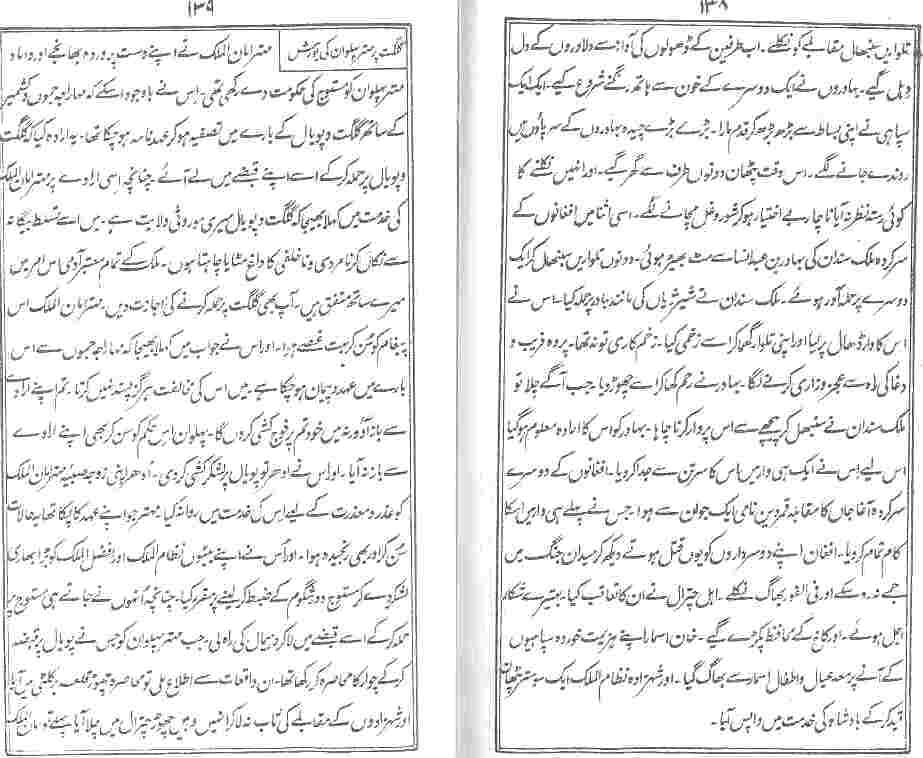 ۱۳۸
تلواریں سنبھال مقابلے کو نکلے۔ اب طرفین کے ڈھولوں کی آواز سے دلاوروں کے دل
دہل گیے۔ بہادروں نے ایک دوسرے کے خون سے ہاتھ رنگنے شروع کیے۔ ایک ایک
سپاہی نے اپنی بساط سے بڑھ بڑھ کر قدم مارا۔ بڑے بڑے چیدہ بہادروں کے سر پاؤں میں
روندے جانے لگے۔ اس وقت پٹھان دونوں طرف سے گھر گیے۔ اور انہیں نکلنے کا
کوئی رستہ نظر نہ آیا ناچار بے اختیار ہو کر شور و غل مچانے لگے۔ اسی اثنا میں افغانوں کے
سرکردہ ملک سندان کی بہادر بن عبدالنسا سے مٹ بھیڑ ہوئی۔ دونوں تلواریں سنبھال کر ایک
دوسرے پر حملہ آور ہوئے۔ ملک سندان نے شیر ژیاں کی مانند بہادر پر حملہ کیا۔ اس نے
اس کا وار ڈھال پر لیا اور اپنی تلوار گھما کر اسے زخمی کیا۔ زخم کاری تو نہ تھا۔ پر وہ فریب و
دغا کی راہ سے عجز و زاری کرنے لگا۔ بہادر نے رحم کھا کر اسے چھوڑ دیا۔ جب آگے چلا تو
ملک سندان نے سنبھل کر پیچھے سے اس پر وار کرنا چاہا۔ بہادر کو اس کا ارادہ معلوم ہو گیا
اس لیے اس نے ایک ہی وار میں اس کا سر تن سے جدا کر دیا۔ افغانوں کے دوسرے
سرکردہ آغا جان کا مقابلہ قردین نامی ایک جوان سے ہوا۔ جس نے پہلے ہی وار میں اسکا
کام تمام کر دیا۔ افغان اپنے دو سرداروں کو یوں قتل ہوتے دیکھ کر میدان جنگ میں
جمے نہ رہ سکے اور فی الفور بھاگ نکلے۔ اہل چترال نے ان کا تعاقب کیا۔ بہتیرے شکار
اجل ہوئے۔ اور کلغ کے محافظ پکڑے گیے۔ خان اسمار اپنے ہزیمت خوردہ سپاہیوں
کے آنے پر معہ عیال و اطفال اسمار سے بھاگ گیا۔ اور شہزادہ نظام الملک ایک سو ستر پٹھان
قید کر کے بادشاہ کی خدمت میں واپس آیا۔
۱۳۹
گلگت پر مہتر پہلوان کی یورش
مہتر امان الملک نے اپنے دست پروردہ بھانجے اور داماد
مہتر پہلوان کو مستوج کی حکومت دے رکھی تھی۔ اس نے باوجود اسکے کہ مہاراجہ جموں و کشمیر
کے ساتھ گلگت و پویال کے بارے میں تصفیہ ہو کر عہد نامہ ہو چکا تھا۔ یہ ارادہ کیا کہ گلگت
و پویال پر حملہ کر کے اسے اپنے قبضے میں لے آئے چنانچہ اسی ارادے پر مہتر امان الملک
کی خدمت میں کہلا بھیجا کہ گلگت و پویال میری موروثی ولایت ہے۔ میں اسے تسلط بیگانہ
سے نکال کر نامردی و ناخلفی کا داغ مٹایا چاہتا ہوں۔ ملک کے تمام معتبر آدمی اس امر میں
میرے ساتھ متفق ہیں۔ آپ بھی گلگت پر حملہ کرنے کی اجازت دیں۔ مہتر امان الملک اس
پیغام کو سن کر بہت غصے ہوا۔ اور اس نے جواب میں کہلا بھیجا کہ مہاراجہ جموں سے اس
بارے میں عہد و پیمان ہو چکا ہے۔ میں اس کی مخالفت ہرگز پسند نہیں کرتا۔ تم اپنے ارادے
سے باز آؤ ورنہ میں خود تم پر فوج کشی کروں گا۔ پہلوان اس حکم کو سن کر بھی اپنے ارادے
سے باز نہ آیا۔ اور اس نے ادھر تو پویال پر لشکر کشی کر دی۔ اُدھر اپنی زوجہ صبیہ مہتر امان الملک
کو عذر و معذرت کے لیے اس کی خدمت میں روانہ کیا۔ مہتر جو اپنے عہد کا پکا تھا یہ حالات
سن کر اور بھی رنجیدہ ہوا۔ اور اس نے اپنے بیٹوں نظام الملک اور افضل الملک کو جرار بھاری
لشکر دے کر مستوج و شیگوم کے ضبط کر لینے پر مقرر کیا۔ چنانچہ اُنہوں نے جاتے ہی مستوج پر
حملہ کر کے اسے قبضے میں لا کر درہمال کی راہ لی۔ جب مہتر پہلوان کو جس نے پویال پر قبضہ
کر کے چوار کا محاصرہ کر رکھا تھا۔ ان واقعات سے اطلاع ملی تو محاصرہ چھوڑ میں آیا۔
اور شہزادوں کے مقابلے کی تاب نہ لا کر انہیں وہیں چھوڑ چترال میں چلا آیا پہلے تو امان الملک